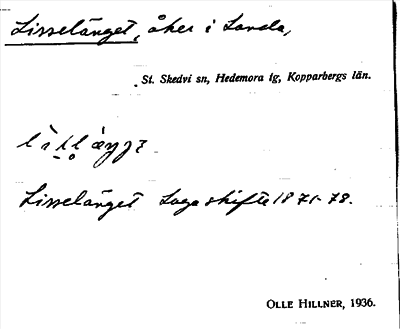 Lisselänget, åker i Landa,
St. Skedvi sn, Hedemora tg, Kopparbergs län.
Lisselänget Laga skifte 1871-78.
OLLE HILLNER, 1936.